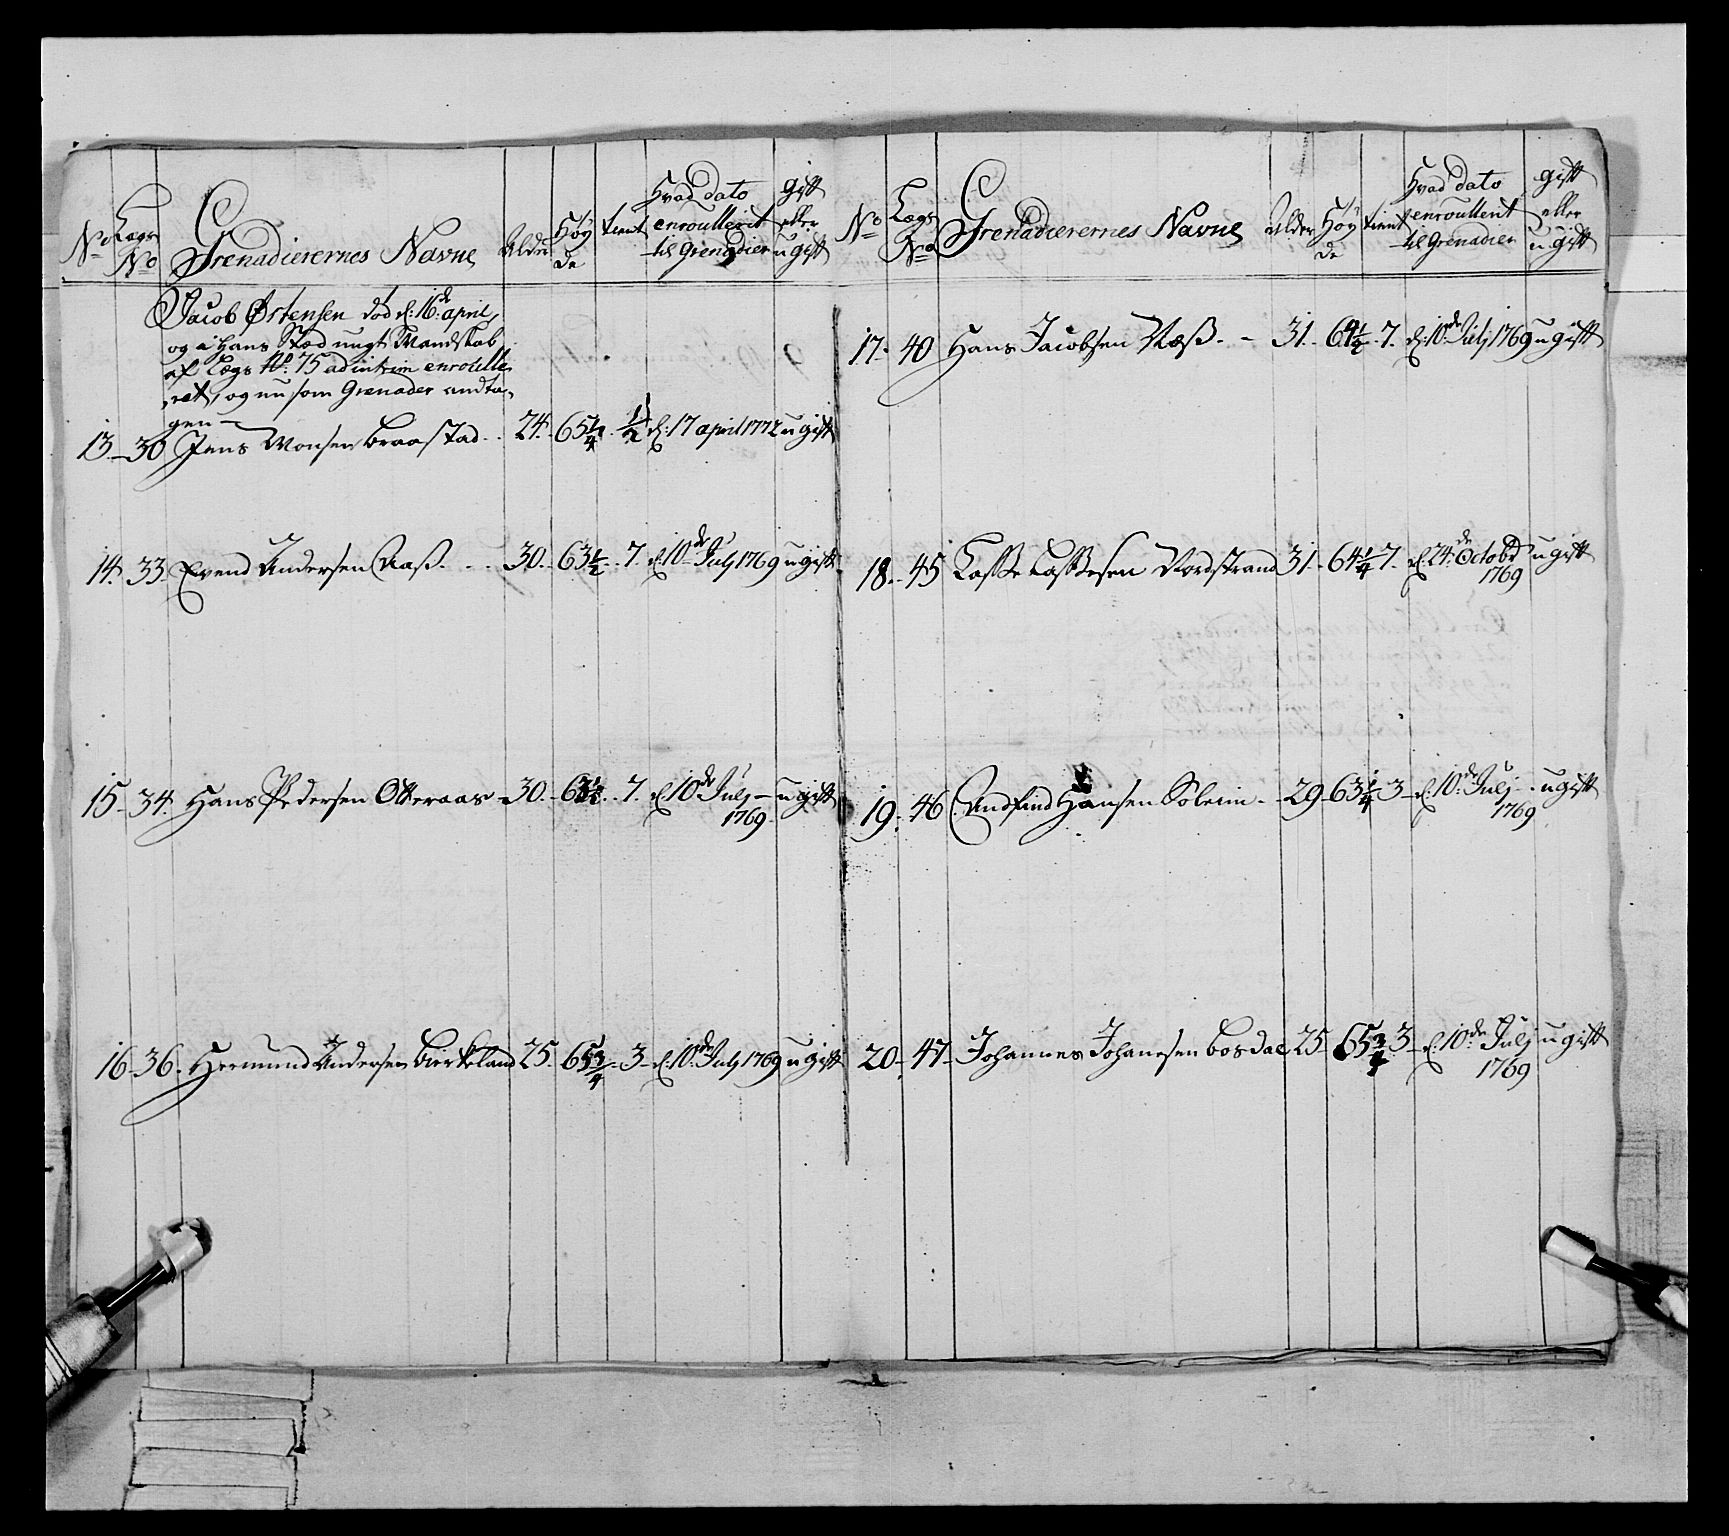 No
Lægs No
Grenadierernes Navne
Alder
Höy de
tient
Hvad dato enroullerit til Grenadier
gift eller ugift
Jacob Østensen død d: 16de april,
og i Hans Stæd ungt Mandskab
af Lægs No: 75 ad intrim enroulle
ret, og nu som Grenader andta
gen
13 30 Jens Monsen Braastad 24 65 1/4 1/2 d: 17 april 1772 ugift
14 33 Evend Andersen Aaß 30 63 1/2 7 d: 10de Julj 1769 ugift
15 34 Hans Pedersen Otteraas 30 63 1/2 7 d: 10de Julj 1769 ugift
16 36 Hermund Andersen Birkeland 25 65 3/4 3 d: 10de Julj 1769 ugift
No
Lægs No
Grenadierernes Navne
Alder
Höy de
tient
Hvad dato enroullerit til Grenadier
gift eller ugift
17 40 Hans Jacobsen Næß 31 64 1/2 7 d: 10de Julj 1769 ugift
18 45 Lasse Lassesen Nordstrand 31 64 1/4 7 d: 24de Octobr 1769 ugift
19 46 Andfind Hansen Soleim 29 63 1/4 3 d: 10de Julj 1769 ugift
20 47 Johannes Johanesen Bosdal 25 65 3/4 3 d: 10de Julj 1769 ugift